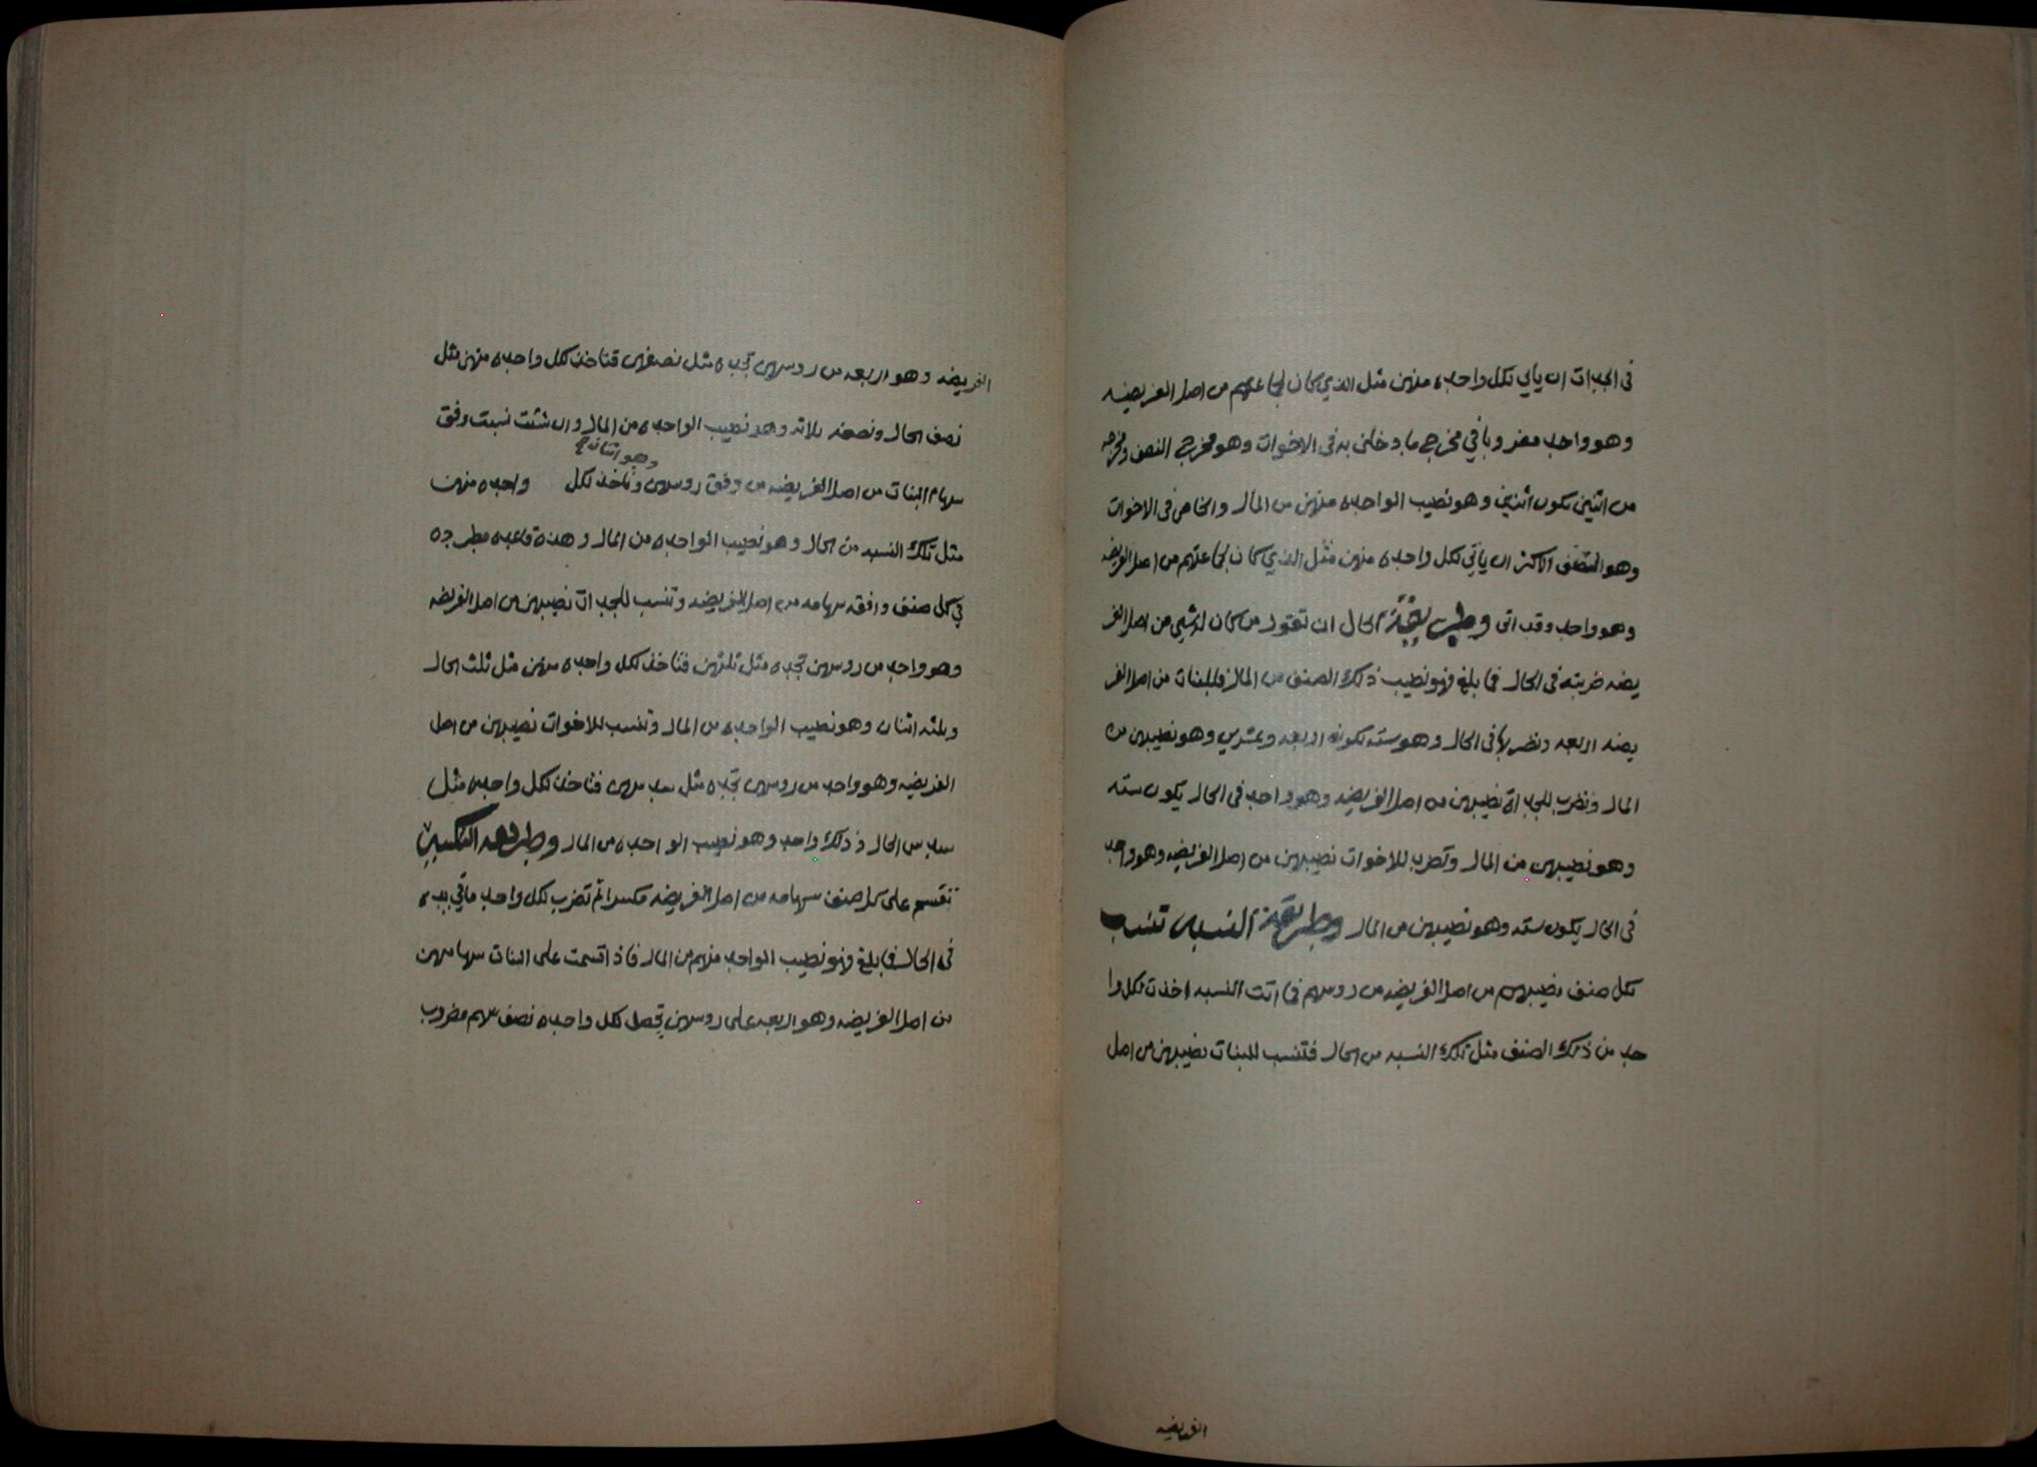 في الجدات ان ياتي لكل واحده منهن مثل الذي كان لجماعتهم من اصل الفريضه
وهو واحد مضروبا في مخرج ما دخلن به في الاخوات وهو مخرج النصف ومخرجه
من اثنين يكون اثنين وهو نصيب الواحده منهن من المال والخاص في الاخوات
وهو الصنف الاكثر ان ياتي لكل واحده منهن مثل الذي كان لجماعتهم من اصل الفريضه
وهو واحد وقد اتى وطريقة الحال ان تقول من كان له شي من اصل الفر
يضه ضربته في الحال فما بلغ فهو نصيب ذلك الصنف من المال فللبنات من اصل الفر
يضه اربعه وتضربها في الحال وهو سته تكون اربعه وعشرين وهو نصيبهن من
المال وتضرب للجدات نصيبهن من اصل الفريضه وهو واحد في الحال يكون سته
وهو نصيبهن من المال وتضرب للاخوات نصيبهن من اصل الفريضه وهو واحد
في الحال يكون سته وهو نصيبهن من المال وطريقة النسبه تنسب
لكل صنف نصيبهم من اصل الفريضه من روسهم فما اتت النسبه اخذت لكل وا
حد من ذلك الصنف مثل تلك النسبه من الحال فتنسب للبنات نصيبهن من اصل
الفريضه
الفريضه وهو اربعه من روسهن تجده مثل نصفهن فتاخذ لكل واحده منهن مثل
نصف الحال ونصفه ثلاثه وهو نصيب الواحده من المال وان شئت نسبت وفق
وهو اثنان صح
سهام البنات من اصل الفريضه من وفق روسهن وتاخذ لكل واحده منهن
مثل تلك النسبه من الحال وهو نصيب الواحده من المال وهذه قاعده مطرده
في كل صنف وافقه سهامه من اصل الفريضه وتنسب للجدات نصيبهن من اصل الفريضه
وهو واحد من روسهن تجده مثل ثلثهن فتاخذ لكل واحده منهن مثل ثلث الحال
وثلثه اثنان وهو نصيب الواحده من المال وتنسب للاخوات نصيبهن من اصل
الفريضه وهو واحد من روسهن تجده مثل سدسهن فتاخذ لكل واحده مثل
سدس الحال وذلك واحد وهو نصيب الواحده من المال وطريقه التكسير
تقسم على كل صنف سهامه من اصل الفريضه مكسرا ثم تضرب لكل واحد ما في يده
في الحال فما بلغ فهو نصيب الواحد منهم من المال فاذا قسمت على البنات سهامهن
من اصل الفريضه وهو اربعه على روسهن يحصل لكل واحده نصف سهم مضروب